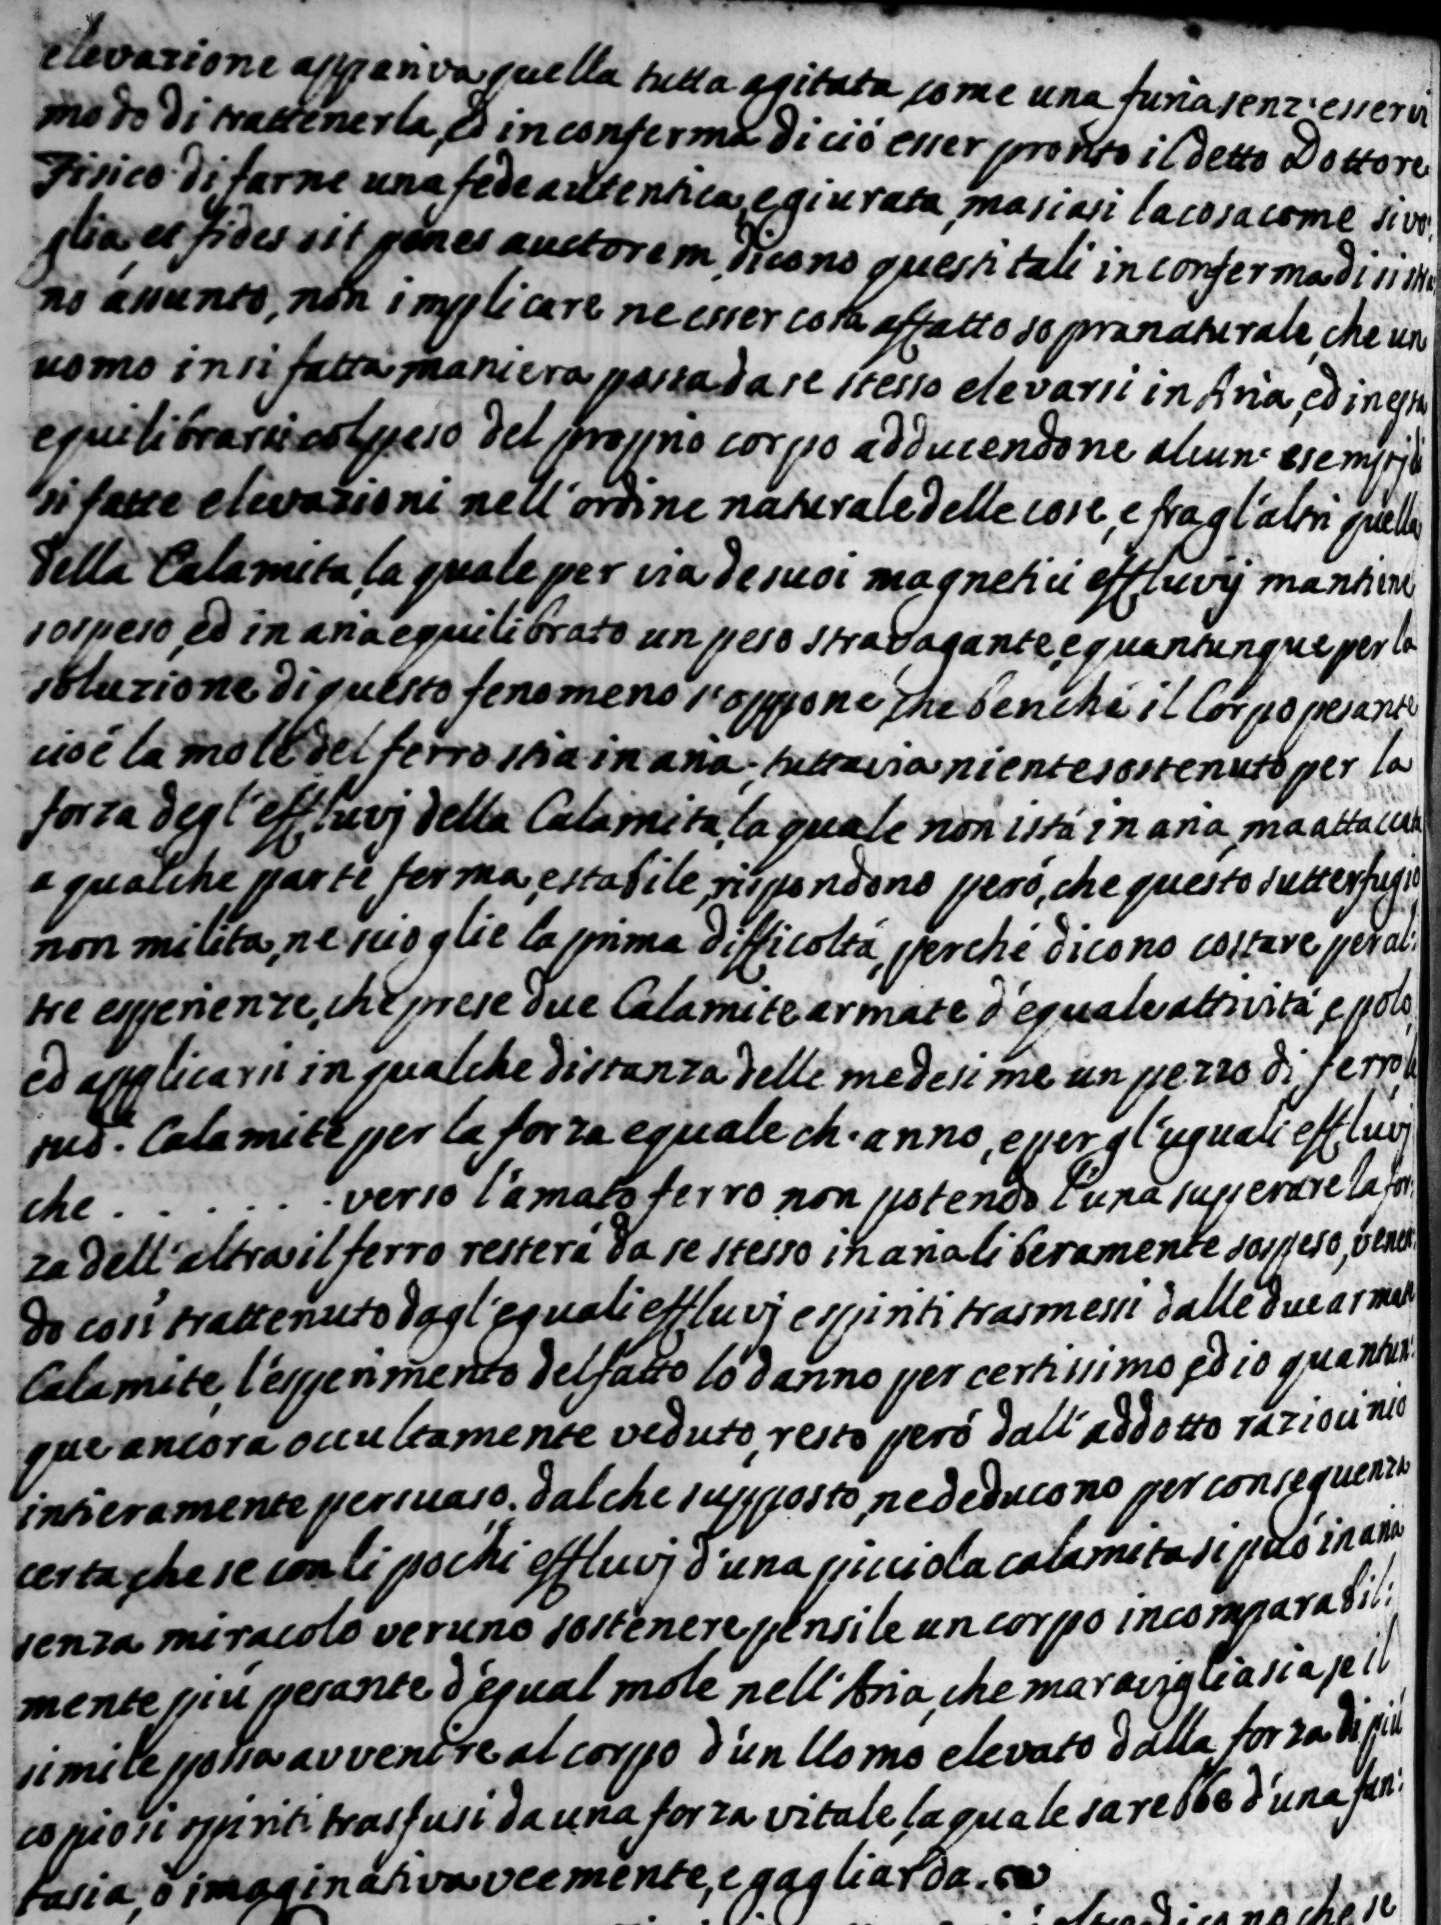 elevazione appariva quella tutta agitata come una furia senz'esservi
modo di trattenerla, ed in conferma di ciò esser pronto il detto Dottore
Fisico di farne una fede autentica, e giurata, ma siasi la cosa come si vo:
glia, et fides sit penes auctorem, dicono questi tali in conferma di si stra
no assunto, non implicare ne esser cosa affatto sopranaturale, che un
uomo in si fatta maniera possa da se stesso elevarsi in Aria, ed in essa
equilibrarsi col peso del proprio corpo adducendone alcun' esempij di
si fatte elevazioni nell'ordine naturale delle cose, e fragl'altri quella
della Calamita, la quale per via de suoi magnetici effluvij mantiene
sospeso, ed in aria equilibrato un peso stravagante, e quantunque per la
soluzione di questo fenomeno s'oppone, che benché il Corpo pesante
cioé la mole del ferro stia in aria, tuttavia niente sostenuto per la
forza degl'effluvj della Calamita, la quale non istá in aria, ma attaccata
a qualche parte ferma, e stabile, rispondono peró, che questo sutterfugio
non milita, ne scioglie la prima difficoltá, perché dicono costare per al:
tre esperienze, che prese due Calamite armate d'eguale attivitá, e polo,
ed applicarsi in qualche distanza delle medesime un pezzo di ferro, le
sud.e Calamite per la forza eguale ch'anno, e per gl'uguali effluvj
che . . . . . . . verso l'amato ferro non potendo l'una superare la for:
za dell'altra il ferro resterá da se stesso in aria liberamente sospeso, venen:
do cosi trattenuto dagl'eguali effluvj e spiriti trasmessi dalle due armate
Calamite, l'esperimento del fatto lo danno per certissimo, ed io quantun:
que ancora occultamente veduto, resto peró dall'addotto raziocinio
intieramente persuaso. dal che supposto, ne deducono per conseguenza
certa, che se con li pochi effluvj d'una picciola calamita si puó in aria
senza miracolo veruno sostenere pensile un corpo incomparabil:
mente piú pesante d'egual mole nell'Aria, che maraviglia sia se il
simile possa avvenire al corpo d'un Uomo elevato dalla forza di piú
copiosi spiriti trasfusi da una forza vitale, la quale sarebbe d'una fan:
tasia, ò imaginativa veemente, e gagliarda.
dicono che se